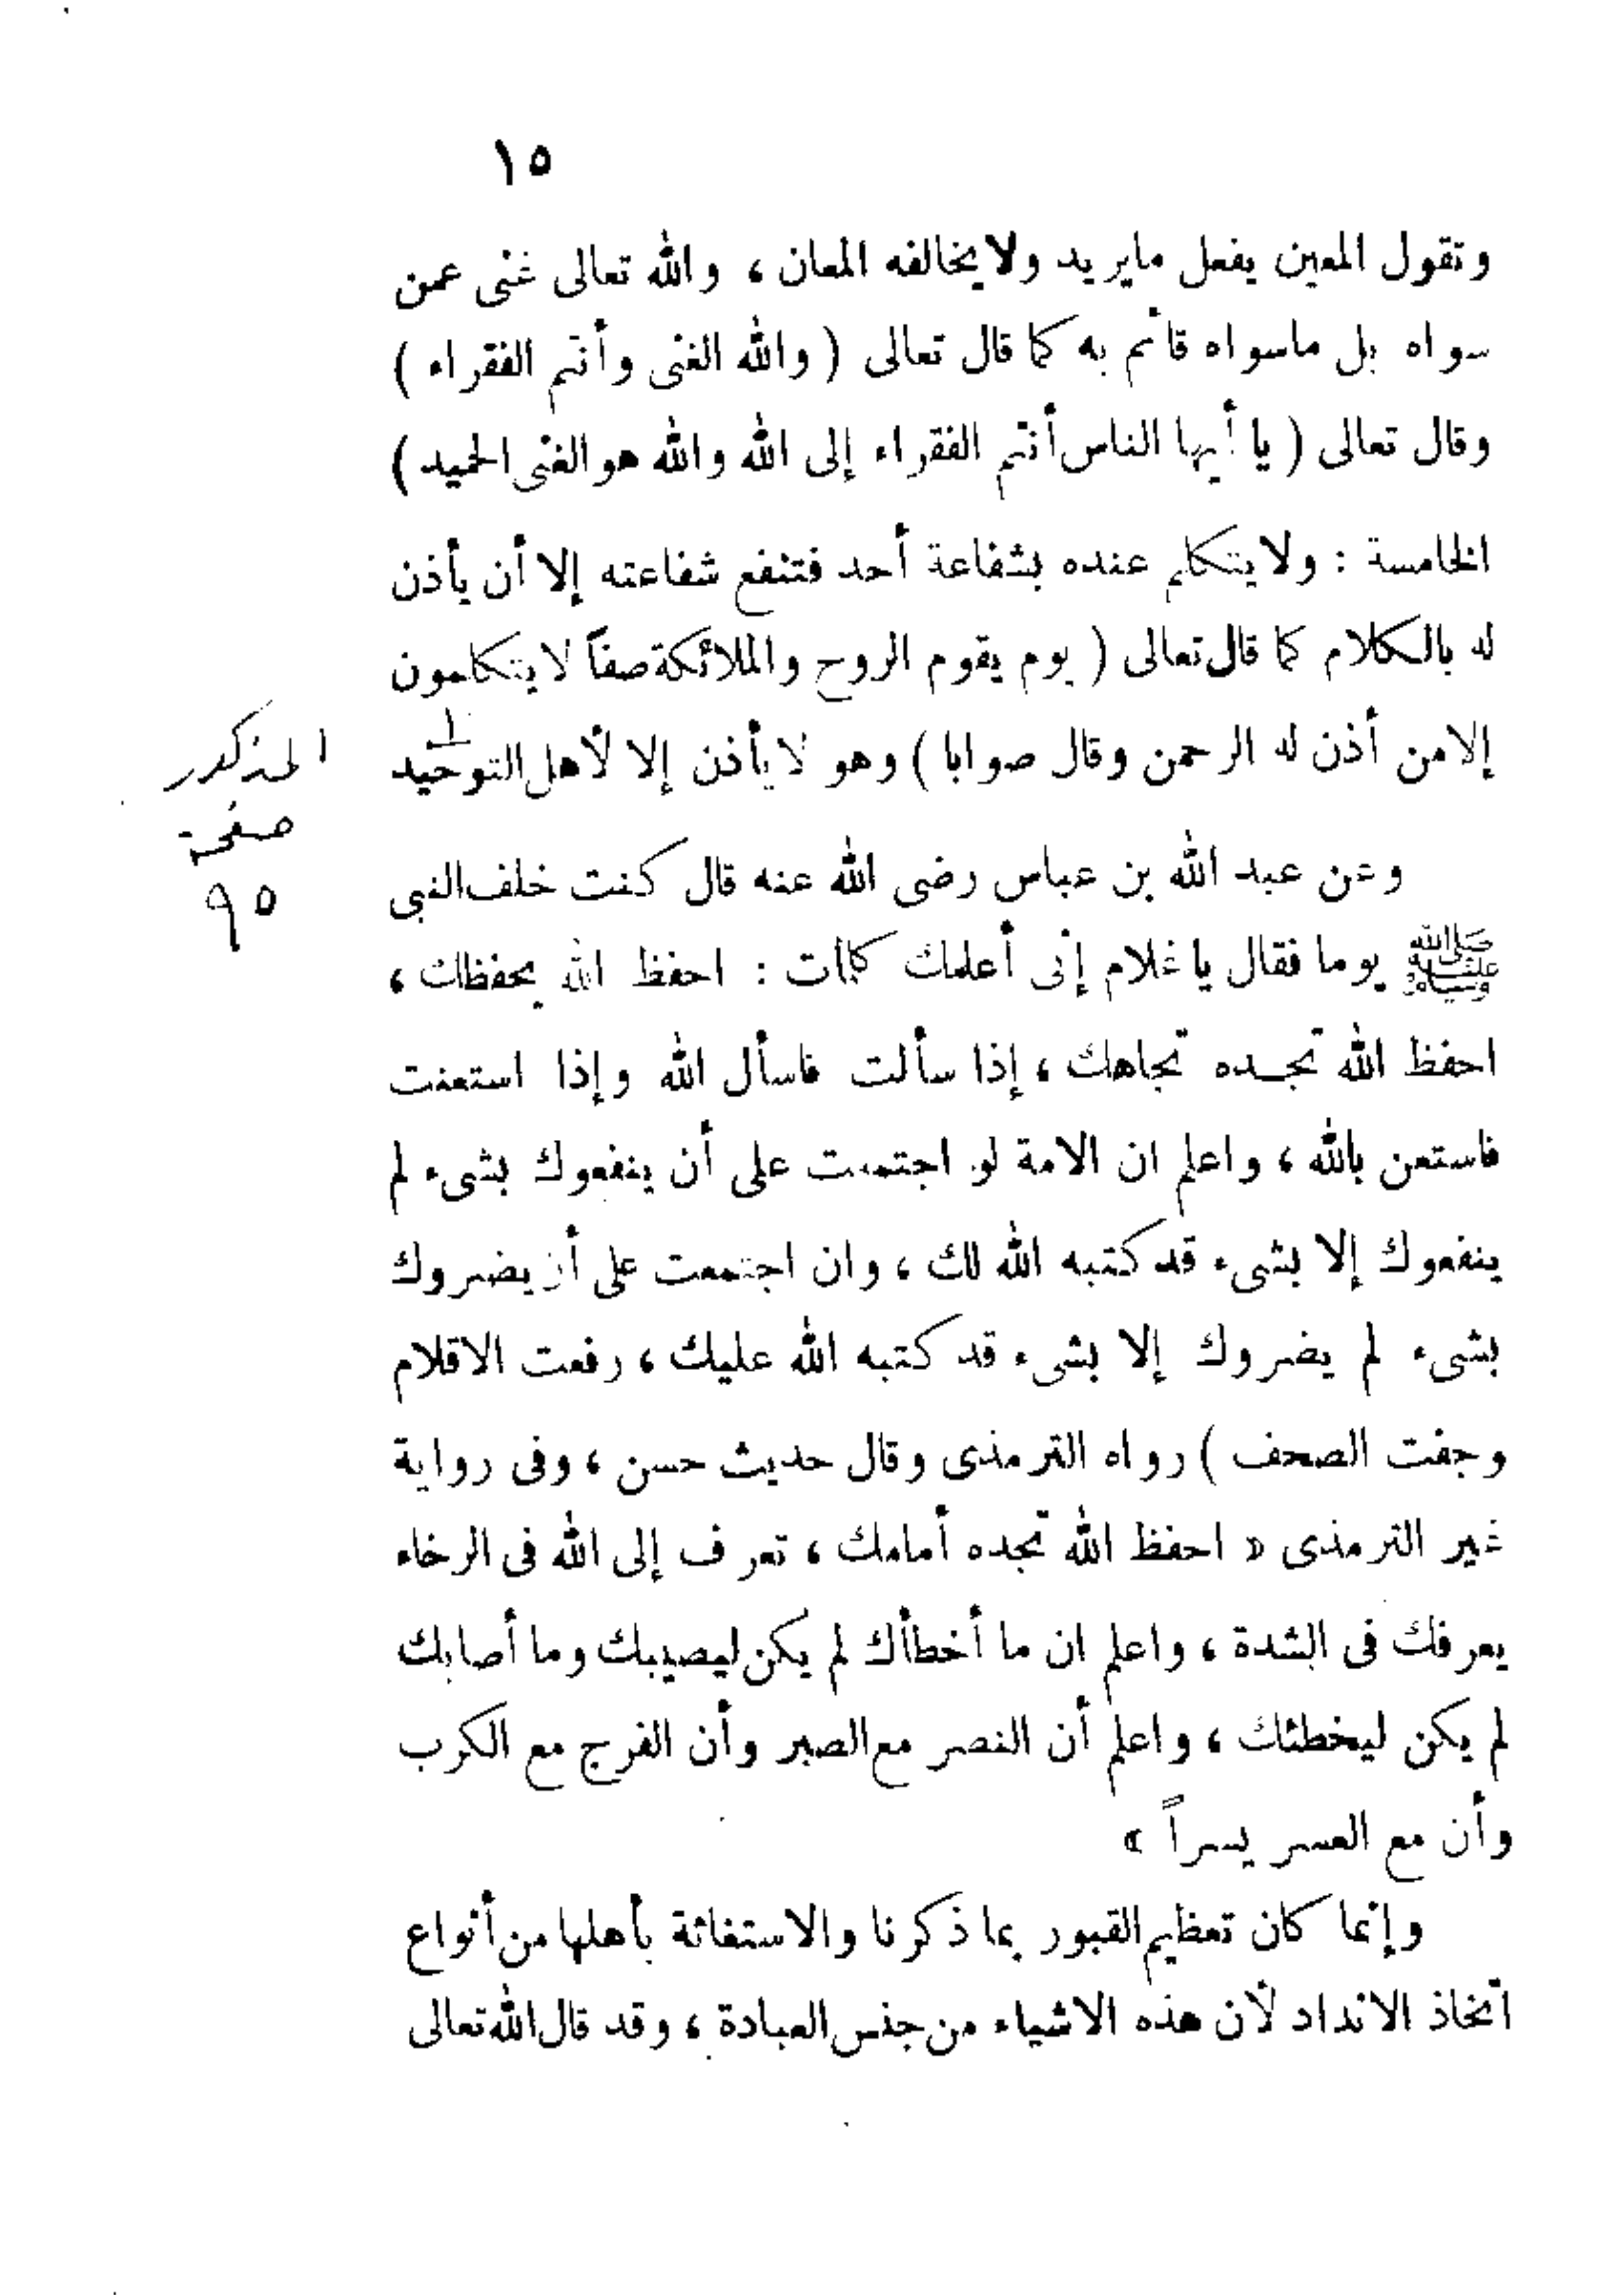 ١٥
وتقول المعين يفعل مايريد ولا يخالفه المعان ، والله تعالى غنى عمن
سواه بل ماسواه قائم به كما قال تعالى ( والله الغنى وأنتم الفقراء )
وقال تعالى ( يا أيها الناس أنتم الفقراء إلى الله والله هو الغنى الحميد )
الخامسة : ولا يتكلم عنده بشفاعة أحد فتنفع شفاعته إلا أن يأذن
له بالكلام كما قال تعالى ( يوم يقوم الروح والملائكة صفاً لا يتكلمون
إلا من أذن له الرحمن وقال صوابا ) وهو لا يأذن إلا لأهل التوحيد
المذكور
صفحة
٩٥
وعن عبد الله بن عباس رضى الله عنه قال كنت خلف النبى
ﷺ يوما فقال يا غلام إنى أعلمك كلمات : احفظ الله يحفظك ،
احفظ الله تجده تجاهك ، إذا سألت فاسأل الله وإذا استعنت
فاستعن بالله ، واعلم ان الامة لو اجتمعت على أن ينفعوك بشىء لم
ينفعوك إلا بشىء قد كتبه الله لك ، وان اجتمعت على أن يضروك
بشىء لم يضروك إلا بشىء قد كتبه الله عليك ، رفعت الاقلام
وجفت الصحف ) رواه الترمذى وقال حديث حسن ، وفى رواية
غير الترمذى « احفظ الله تجده أمامك ، تعرف إلى الله فى الرخاء
يعرفك فى الشدة ، واعلم ان ما أخطأك لم يكن ليصيبك وما أصابك
لم يكن ليخطئك ، واعلم أن النصر مع الصبر وأن الفرج مع الكرب
وأن مع العسر يسراً »
وإنما كان تعظيم القبور بما ذكرنا والاستغاثة بأهلها من أنواع
اتخاذ الانداد لأن هذه الاشياء من جنس العبادة ، وقد قال الله تعالى